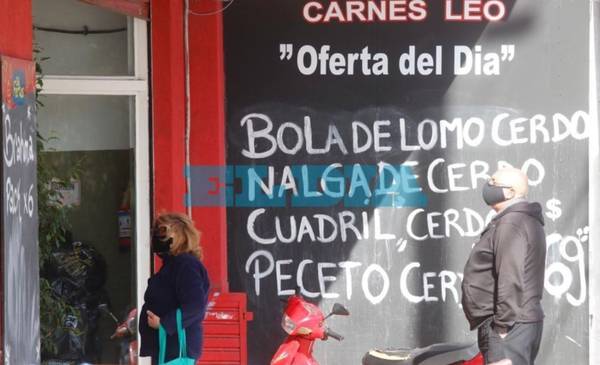 CARNES LEO
"Oferta del Dia"
BOLA DE LOMO CERDO
NALGA DE CERDO
CUADRIL, CERDO $
PECETO CER
Brahma
Pack x 6
EL DIA